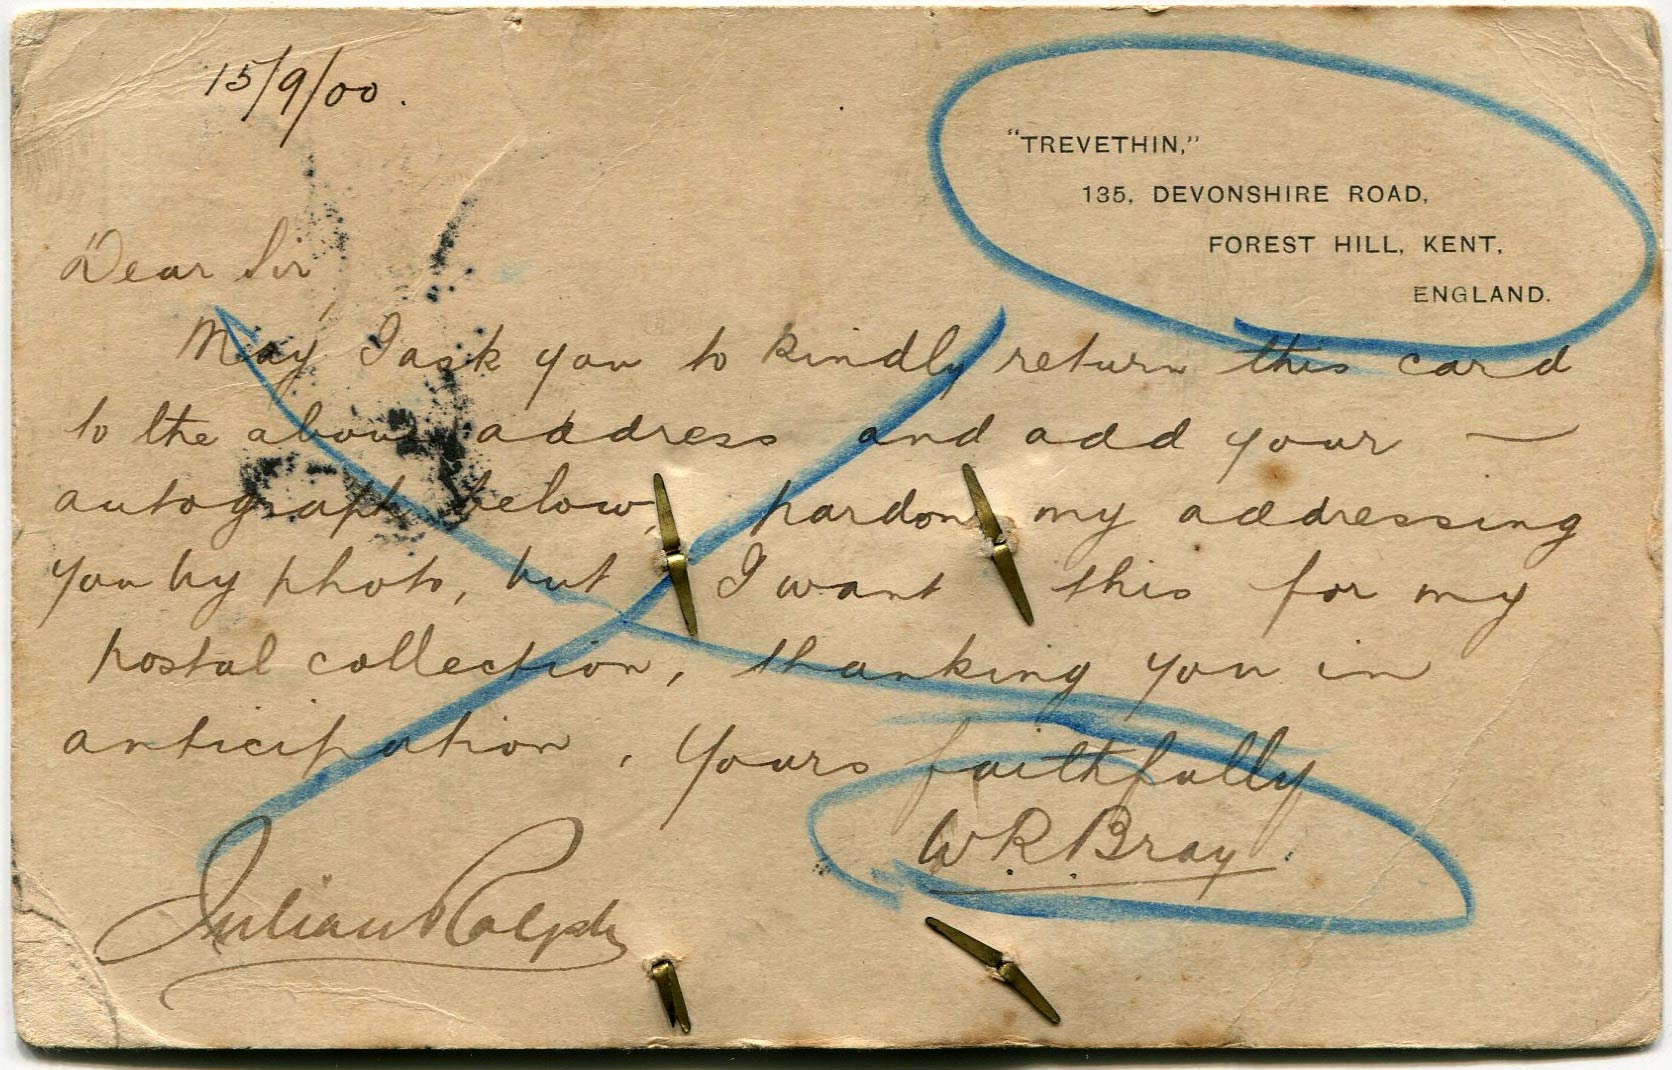 15/9/00.
"TREVETHIN,"
135, DEVONSHIRE ROAD,
FOREST HILL, KENT,
ENGLAND.
Dear Sir,
May I ask you to kindly return this card
to the above address and add your —
autograph below, pardon my addressing
you by photo, but I want this for my
postal collection, thanking you in
anticipation, Yours faithfully
W.R.Bray.
Julian Ralph